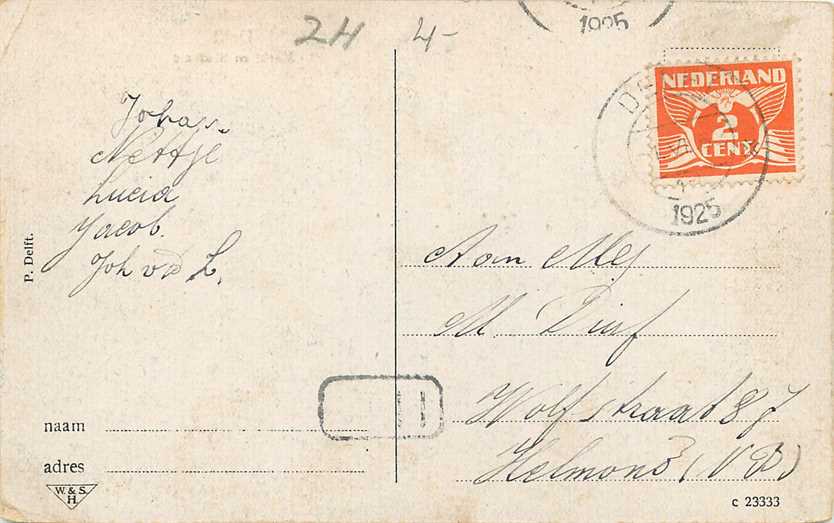 2H 4-
1925
NEDERLAND
2
CENT
1925
Nettje
Lucia
Jacob
Joh v d L.
P. Delft.
Aan Mej
M.
Wolfstraat 87
Helmond (N B)
naam
adres
W. & S.
H.
c 23333